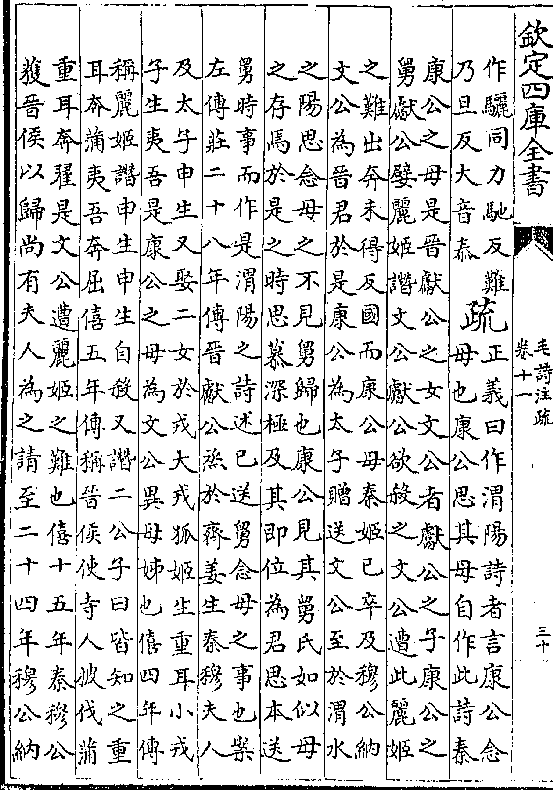 欽定四庫全書
毛詩注疏
卷十一
三十
作驪同力馳反難
乃旦反大音泰
疏
正義曰作渭陽詩者言康公念
母也康公思其母自作此詩秦
康公之母是晉獻公之女文公者獻公之子康公之
舅獻公嬖麗姬譖文公獻公欲殺之文公遭此麗姬
之難出奔未得反國而康公母秦姬已卒及穆公納
文公為晉君於是康公為太子贈送文公至於渭水
之陽思念母之不見舅歸也康公見其舅氏如似母
之存焉於是之時思慕深極及其即位為君思本送
舅時事而作是渭陽之詩述已送舅念母之事也案
左傳莊二十八年傳晉獻公烝於齊姜生秦穆夫人
及太子申生又娶二女於戎大戎狐姬生重耳小戎
子生夷吾是康公之母為文公異母姊也僖四年傳
稱麗姬譖申生申生自殺又譖二公子曰皆知之重
耳奔蒲夷吾奔屈僖五年傳稱晉侯使寺人披伐蒲
重耳奔翟是文公遭麗姬之難也僖十五年秦穆公
獲晉侯以歸尚有夫人為之請至二十四年穆公納